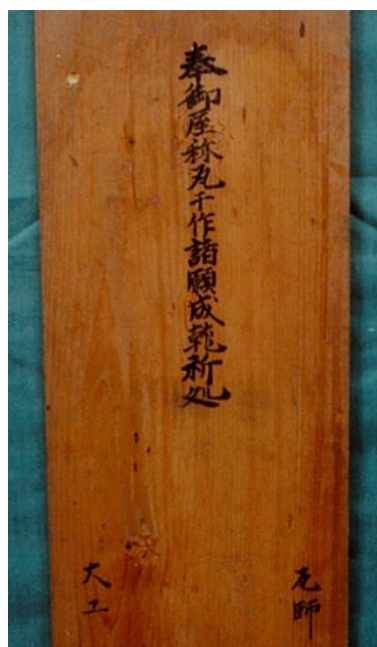 奉御屋祢瓦千作諸願成就祈処
瓦師
大工